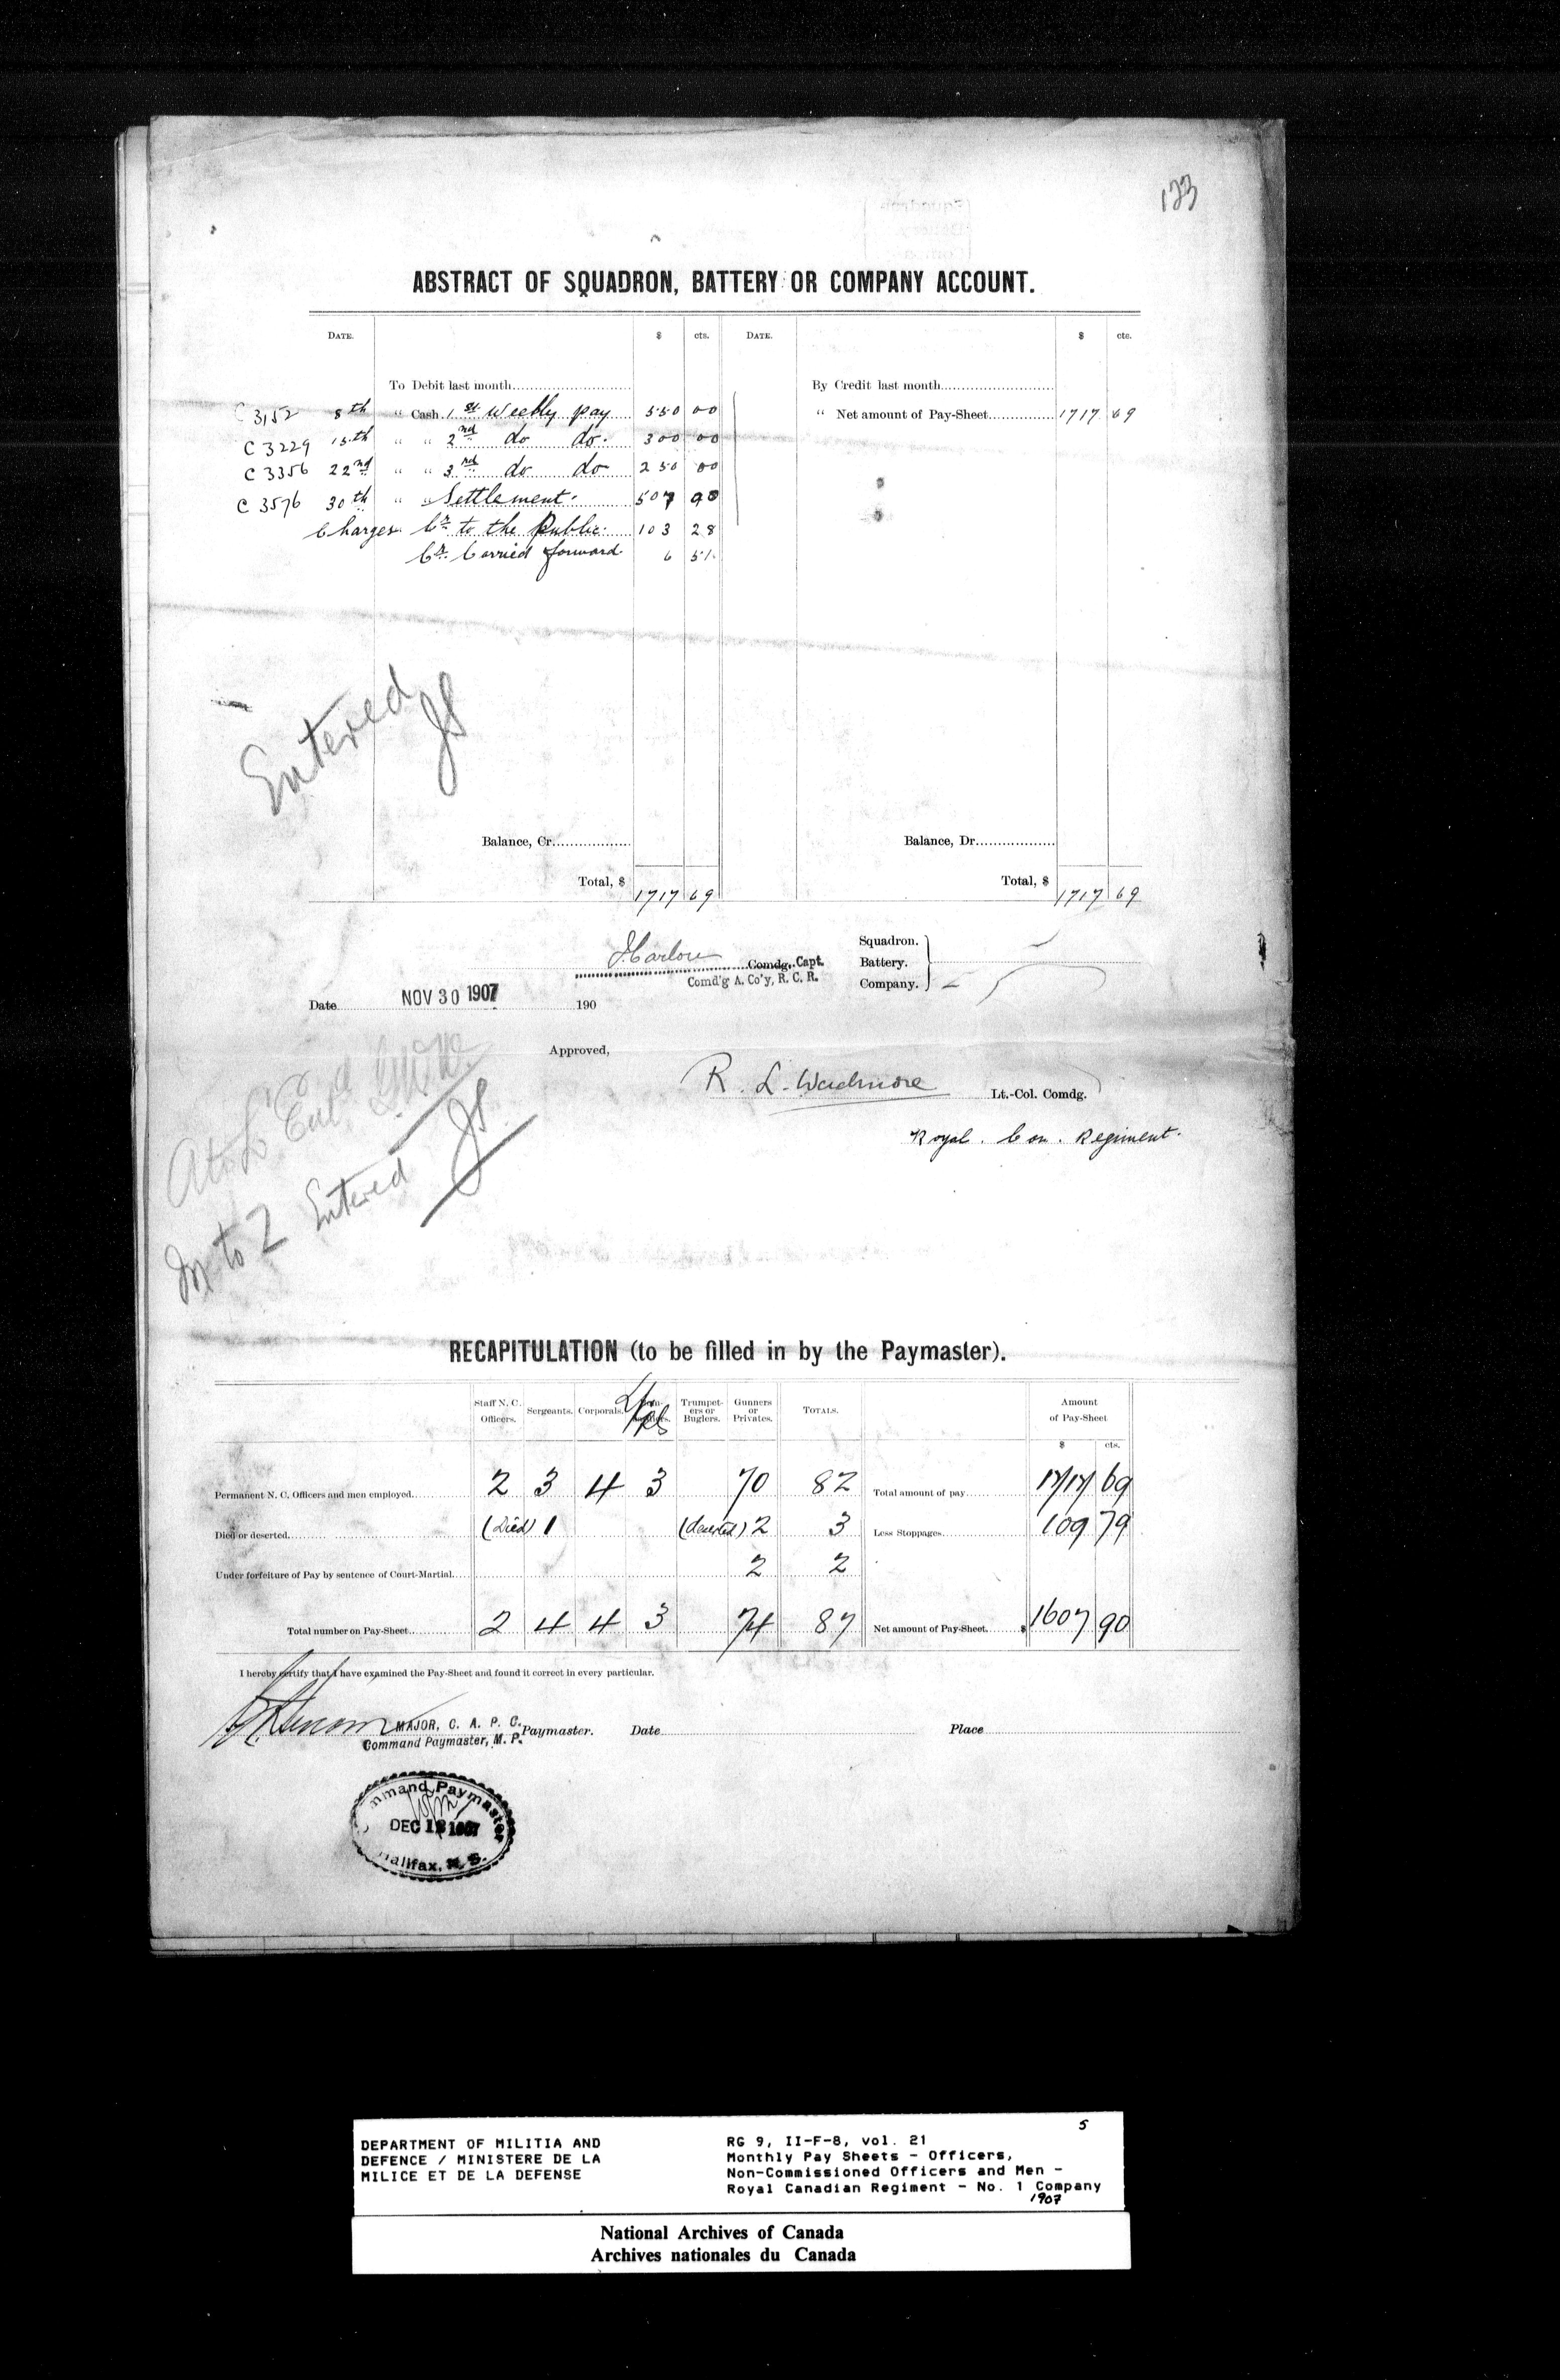 123
ABSTRACT OF SQUADRON, BATTERY OR COMPANY ACCOUNT.
DATE. $ cts. DATE. $ cts.
To Debit last month By Credit last month
C 3152 8th " Cash 1st Weekly pay 550 00 " Net amount of Pay-Sheet 1717 69
C 3229 15th " " 2nd do do. 300 00
C 3356 22nd " " 3rd do do 250 00
C 3576 30th " " Settlement. 507 90
Charges Cr. to the Public. 103 28
Cr. Carried forward 6 51
Entered JS
Balance, Cr. Balance, Dr.
Total, $ 1717 69 Total, $ 1717 69
Squadron.
Comdg. Capt. Battery.
Comd'g A. Co'y, R. C. R. Company.
Date NOV 30 1907 190
Approved,
R. L. Wadmore Lt.-Col. Comdg.
Royal. Can. Regiment.
A to L Ent'd
M to Z Entered JS
RECAPITULATION (to be filled in by the Paymaster).
Staff N. C. Officers. Sergeants. Corporals. Trumpeters or Buglers. Gunners or Privates. TOTALS. Amount of Pay-Sheet
$ cts.
Permanent N. C. Officers and men employed 2 3 4 3 70 82 Total amount of pay 1717 69
Died or deserted (Died) 1 (deserted) 2 3 Less Stoppages 109 79
Under forfeiture of Pay by sentence of Court-Martial 2 2
Total number on Pay-Sheet 2 4 4 3 74 87 Net amount of Pay-Sheet $ 1607 90
I hereby certify that I have examined the Pay-Sheet and found it correct in every particular.
MAJOR, C. A. P. C. Paymaster. Date Place
Command Paymaster, M. P.
Command Paymaster
DEC 1907
Halifax, N. S.
5
DEPARTMENT OF MILITIA AND
DEFENCE / MINISTERE DE LA
MILICE ET DE LA DEFENSE
RG 9, II-F-8, vol. 21
Monthly Pay Sheets - Officers,
Non-Commissioned Officers and Men -
Royal Canadian Regiment - No. 1 Company
1907
National Archives of Canada
Archives nationales du Canada